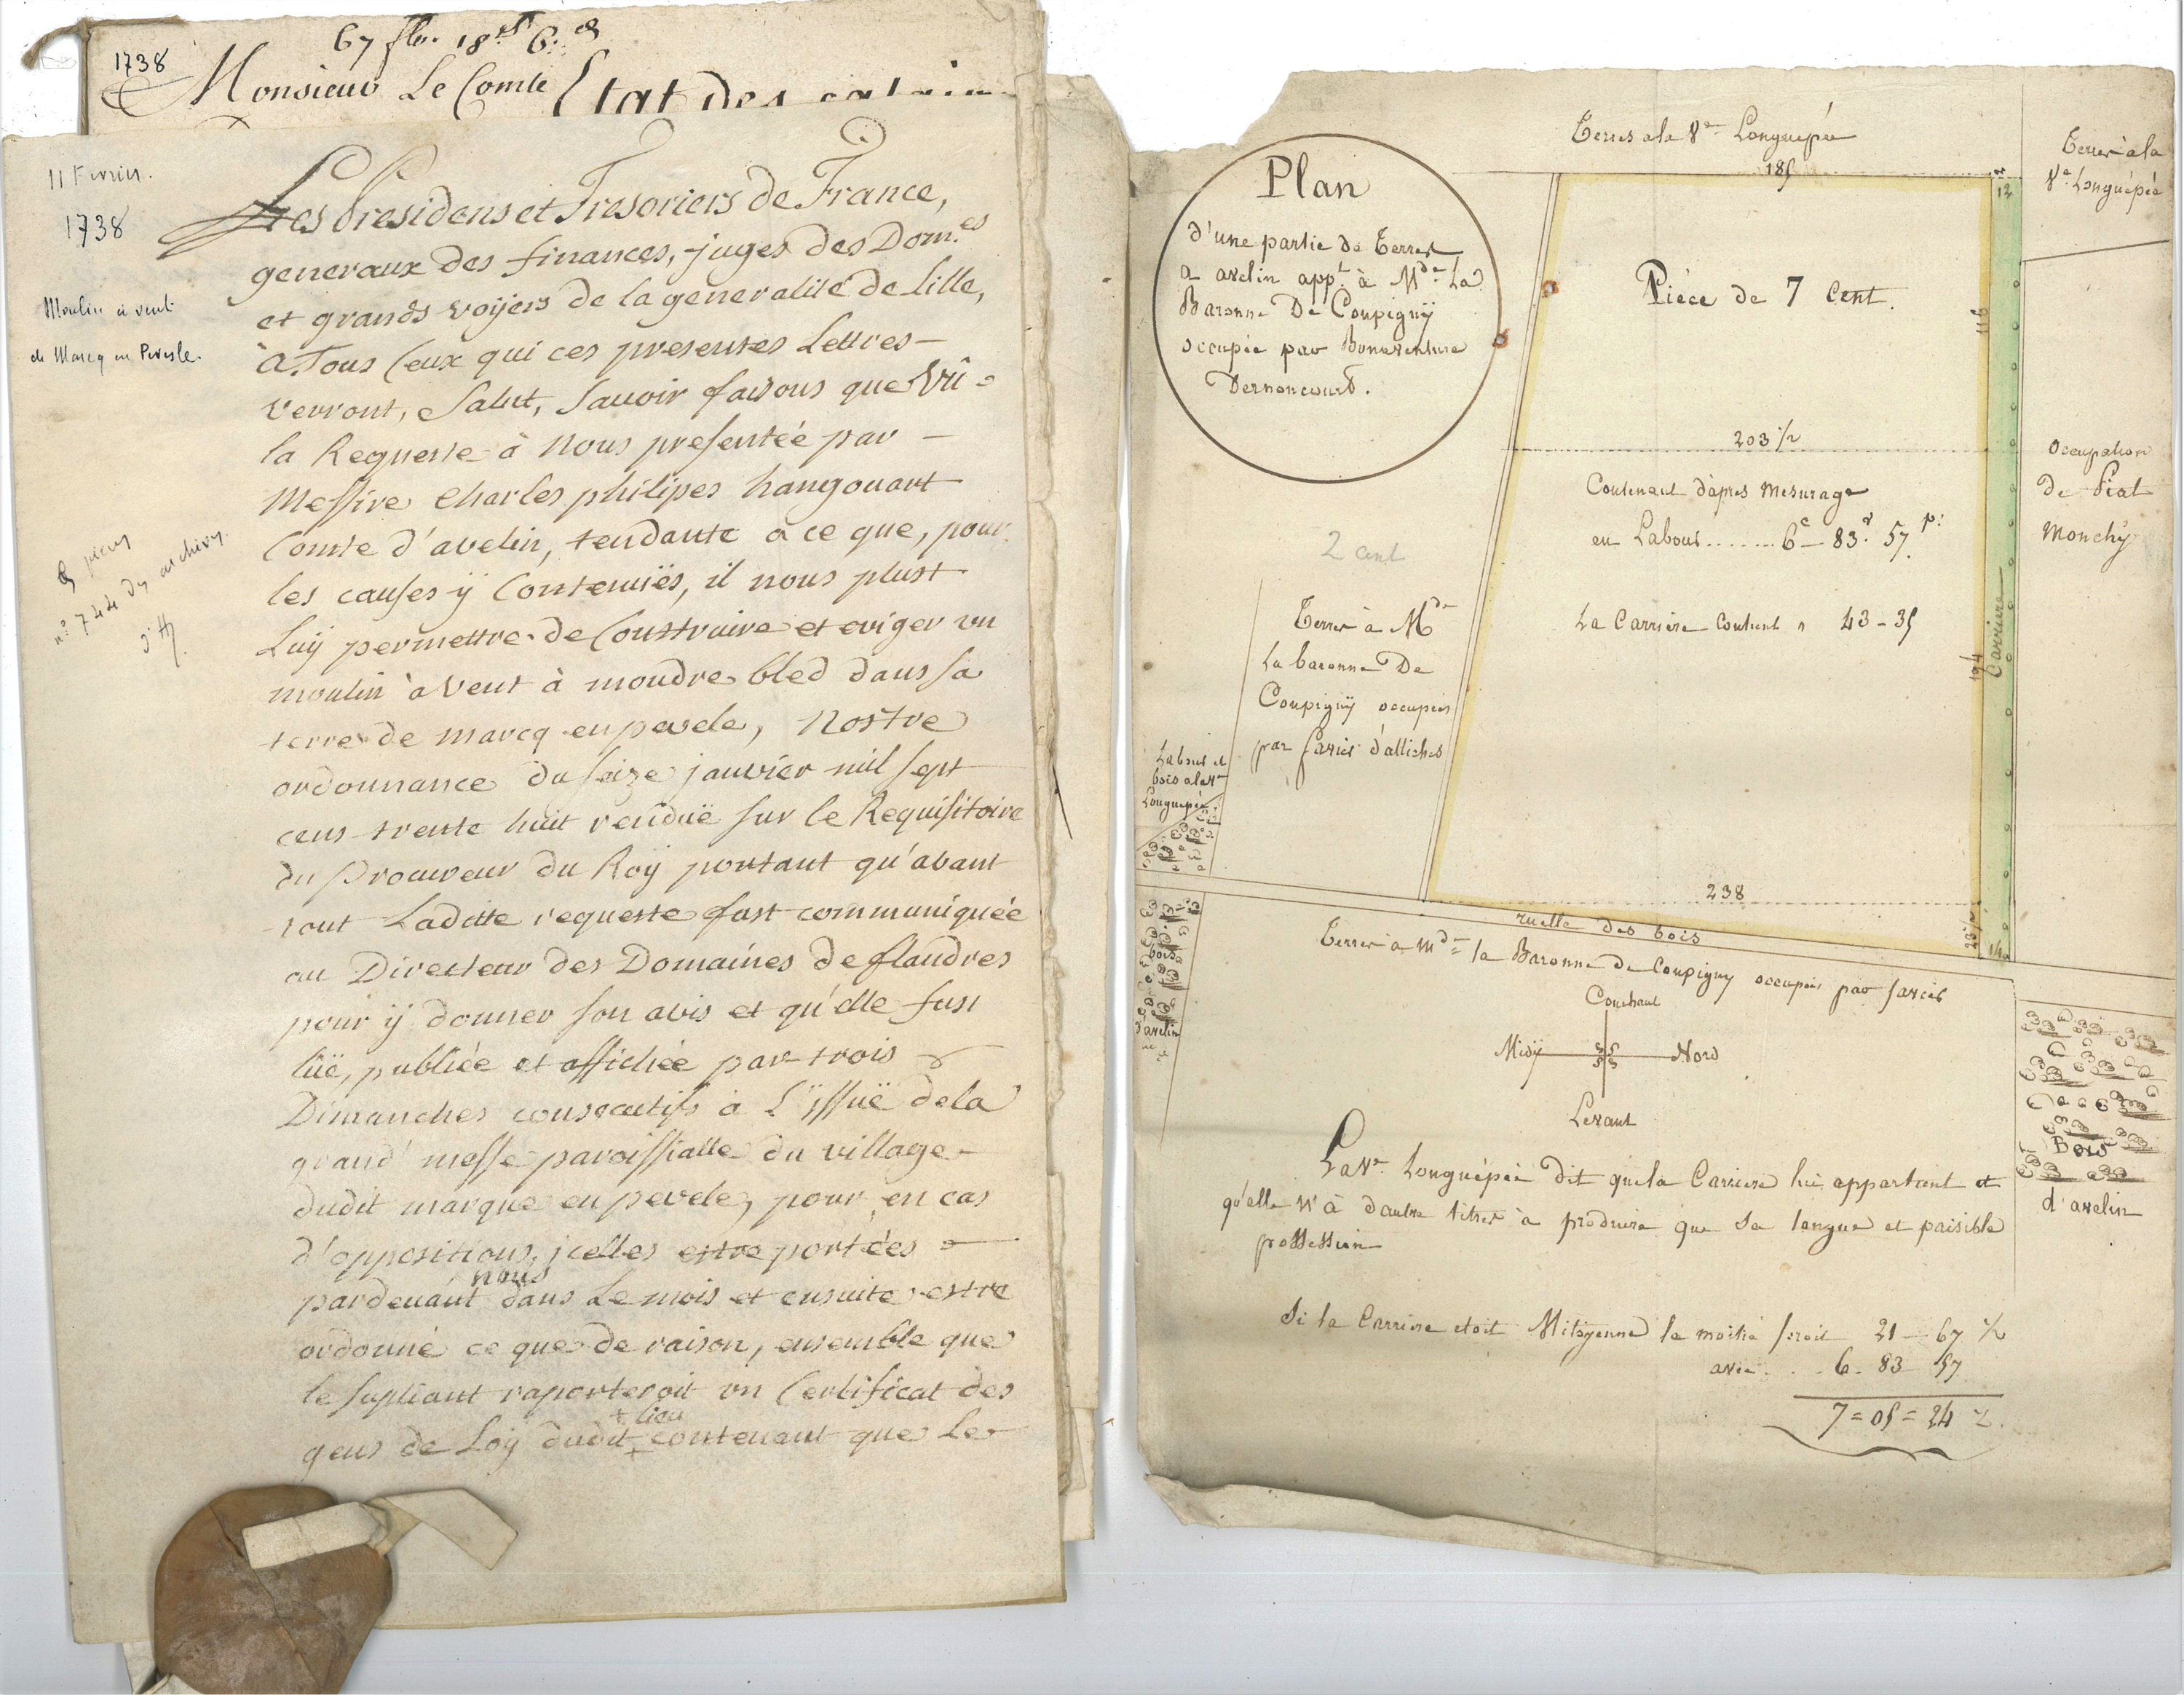 67 flo. 18 6
1738
Monsieur Le Comte Etat des
11 Fevrier.
1738
Moulin à vent
de Marcq en Pevele.
9 pieces
n.º 744 des archives
Les Presidens et Tresoriers de France,
generaux des finances, juges des Dom.es
et grands voÿers de la generalité de lille,
a Tous Ceux qui ces presentes Lettres
verront, Salut, Savoir faisons que Vû
la Requeste à nous presentée par
Messire Charles philipes hangouart
Comte d'avelin, tendante a ce que, pour
les causes ÿ Contenuës, il nous plust
Luÿ permettre de Construire et eriger un
moulin à vent à moudre bled dans sa
terre de marcq en pevele, Nostre
ordonnance du seize janvier mil sept
cens trente huit renduë sur le Requisitoire
du Procureur du Roÿ portant qu'avant
tout Laditte requeste fust communiquée
au Directeur des Domaines de flandres
pour ÿ donner son avis et qu'elle fust
lüe, publiée et affichée par trois
Dimanches consecutifs a L'issuë de la
grand' messe paroissialle du village
dudit marque en pevele, pour en cas
d'oppositions, icelles estre portées
pardevant nous dans Le mois et ensuite estre
ordonné ce que de raison, ensemble que
le supliant raporteroit un Certificat des
gens de Loÿ dudit + lieu contenant que Le
Plan
d'une partie de Terres
a avelin app.t à M.de La
Baronne De Coupignÿ
occupée par Bonaventure
Dernoncourt.
Terres a la V.e Longuépée
185
12
Terres à la
V.e Longuépée
Piéce de 7 Cent.
116
203 1/2
Contenant d'après mesurage
en Labour....... 6c 83. 57 p.
La Carriere Contient " 43 - 35
194
Carriere
Occupation
De Piat
Monchÿ
2 cent
Terres à M.de
La baronne De
Coupignÿ occupées
par d'attiches
Labour et
bois a la V.e
Longuépée
238
ruelle des bois
14
Terres a M.de la Baronne de Coupigny occupées par
bois
d'avelin
Couchant
Midÿ Nord
Levant
Bois
d'avelin
La V.e Longuépée dit que la Carriere lui appartient et
qu'elle n'à d'autre titres à produire que sa longue et paisible
possession
Si la Carriere etoit Mitoÿenne la moitié seroit 21 - 67 1/2
avec . . . 6 - 83 - 57
7 = 05 = 24 1/2.